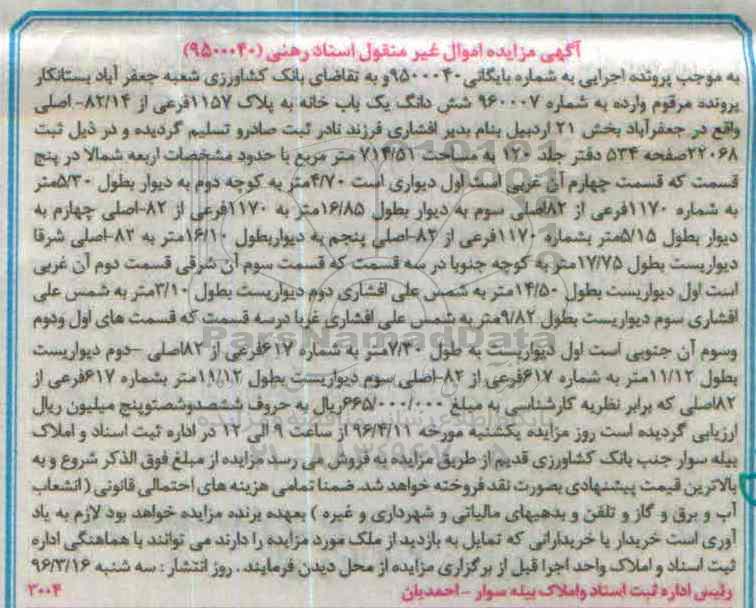 آگهی مزایده اموال غیر منقول اسناد رهنی (۹۵۰۰۰۴۰)
به موجب پرونده اجرایی به شماره بایگانی ۹۵۰۰۰۴۰و به تقاضای بانک کشاورزی شعبه جعفر آباد بستانکار
پرونده مرقوم وارده به شماره ۹۶۰۰۰۷ شش دانگ یک باب خانه به پلاک ۱۱۵۷فرعی از ۸۲/۱۴- اصلی
واقع در جعفرآباد بخش ۲۱ اردبیل بنام بدیر افشاری فرزند نادر ثبت صادرو تسلیم گردیده و در ذیل ثبت
۲۲۰۶۸صفحه ۵۳۴ دفتر جلد ۱۲۰ به مساحت ۷۱۴/۵۱ متر مربع با حدود مشخصات اربعه شمالا در پنج
قسمت که قسمت چهارم آن غربی است اول دیواری است ۴/۷۰متر به کوچه دوم به دیوار بطول ۵/۳۰متر
به شماره ۱۱۷۰فرعی از ۸۲اصلی سوم به دیوار بطول ۱۶/۸۵متر به ۱۱۷۰فرعی از ۸۲-اصلی چهارم به
دیوار بطول ۵/۱۵متر بشماره ۱۱۷۰فرعی از ۸۲-اصلی پنجم به دیواربطول ۱۶/۱۰متر به ۸۲-اصلی شرقا
دیواریست بطول ۱۷/۷۵متر به کوچه جنوبا در سه قسمت که قسمت سوم آن شرقی قسمت دوم آن غربی
است اول دیواریست بطول ۱۴/۵۰متر به شمس علی افشاری دوم دیواریست بطول ۳/۱۰متر به شمس علی
افشاری سوم دیواریست بطول ۹/۸۲متر به شمس علی افشاری غربا درسه قسمت که قسمت های اول ودوم
وسوم آن جنوبی است اول دیواریست به طول ۷/۳۰متر به شماره ۶۱۷فرعی از ۸۲اصلی -دوم دیواریست
بطول ۱۱/۱۲متر به شماره ۶۱۷فرعی از ۸۲-اصلی سوم دیواریست بطول ۱۱/۱۲متر بشماره ۶۱۷فرعی از
۸۲اصلی که برابر نظریه کارشناسی به مبلغ ۶۶۵/۰۰۰/۰۰۰ریال به حروف ششصدوشصتوپنج میلیون ریال
ارزیابی گردیده است روز مزایده یکشنبه مورخه ۹۶/۴/۱۱ از ساعت ۹ الی ۱۲ در اداره ثبت اسناد و املاک
بیله سوار جنب بانک کشاورزی قدیم از طریق مزایده به فروش می رسد مزایده از مبلغ فوق الذکر شروع و به
بالاترین قیمت پیشنهادی بصورت نقد فروخته خواهد شد ضمنا تمامی هزینه های احتمالی قانونی ( انشعاب
آب و برق و گاز و تلفن و بدهیهای مالیاتی و شهرداری و غیره ) بعهده برنده مزایده خواهد بود لازم به یاد
آوری است خریدار یا خریدارانی که تمایل به بازدید از ملک مورد مزایده را دارند می توانند با هماهنگی اداره
ثبت اسناد و املاک واحد اجرا قبل از برگزاری مزایده از محل دیدن فرمایند . روز انتشار : سه شنبه ۹۶/۳/۱۶
رئیس اداره ثبت اسناد واملاک بیله سوار -احمدیان
۳۰۰۴
ParsNamadData